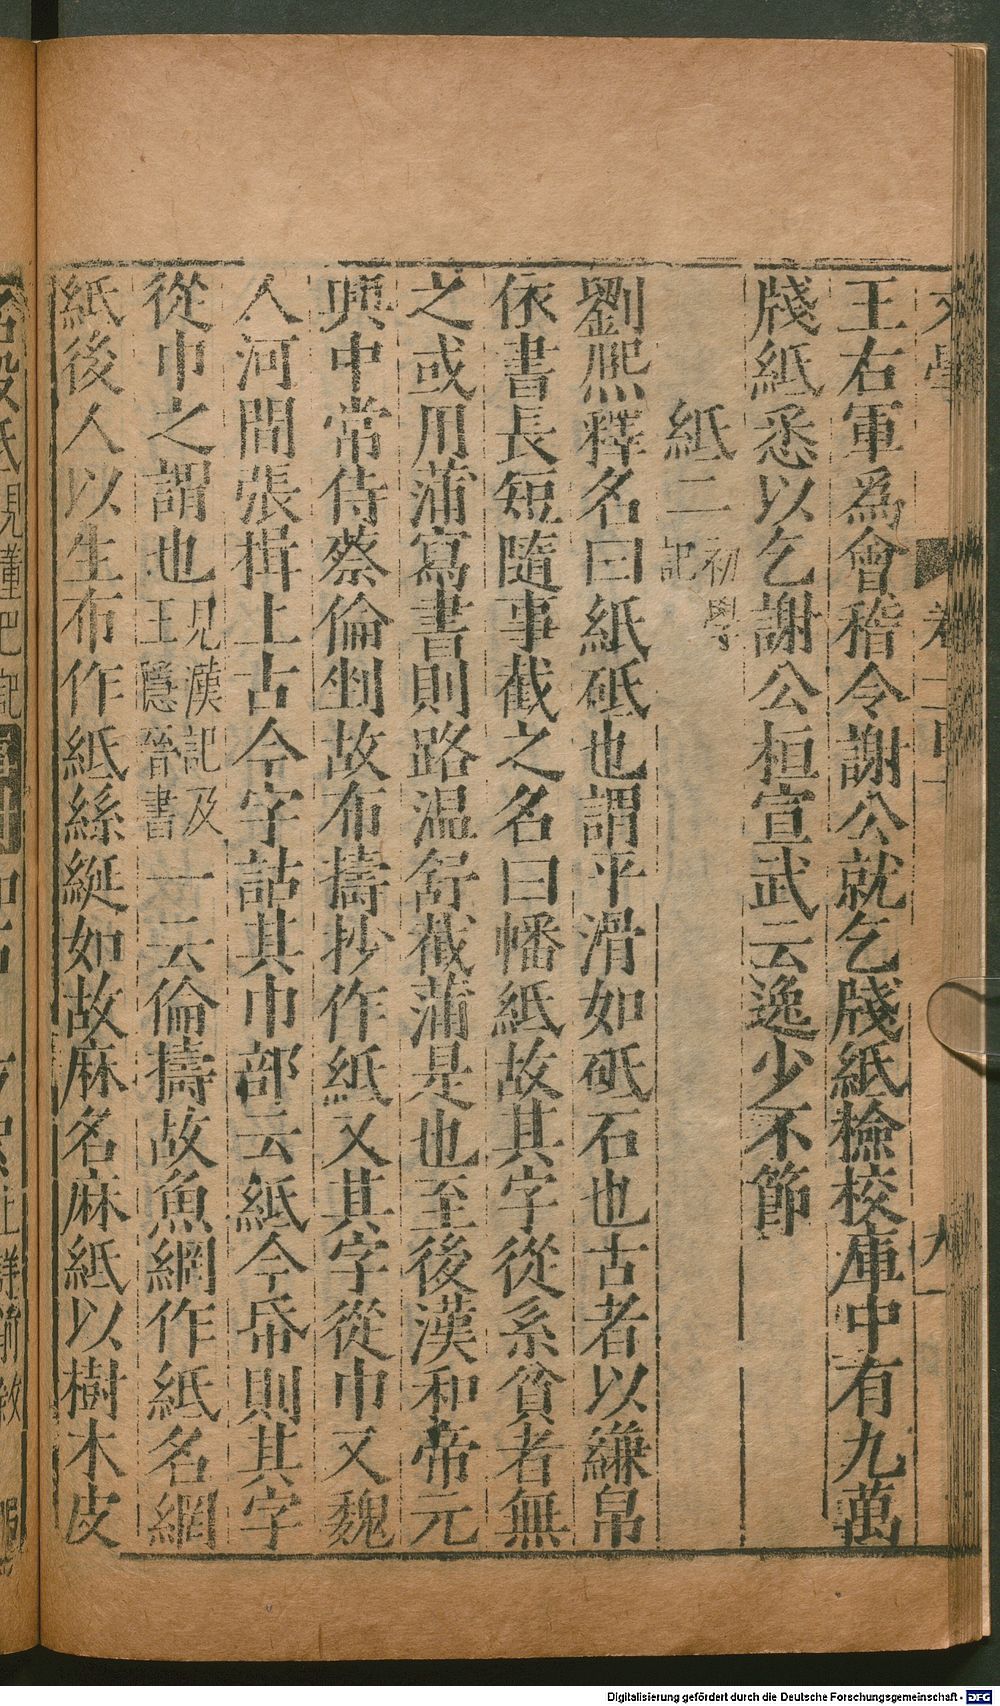 王右軍爲會稽令謝公就乞牋紙檢校庫中有九萬
牋紙悉以乞謝公桓宣武云逸少不節
紙二 初學記
劉熙釋名曰紙砥也謂平滑如砥石也古者以縑帛
依書長短隨事截之名曰幡紙故其字從糸貧者無
之或用蒲寫書則路溫舒截蒲是也至後漢和帝元
興中常侍蔡倫剉故布擣抄作紙又其字從巾又魏
人河間張揖上古今字詁其巾部云紙今帋則其字
從巾之謂也 見漢記及王隱晉書 一云倫擣故魚網作紙名網
紙後人以生布作紙絲綖如故麻名麻紙以樹木皮
Digitalisierung gefördert durch die Deutsche Forschungsgemeinschaft - DFG